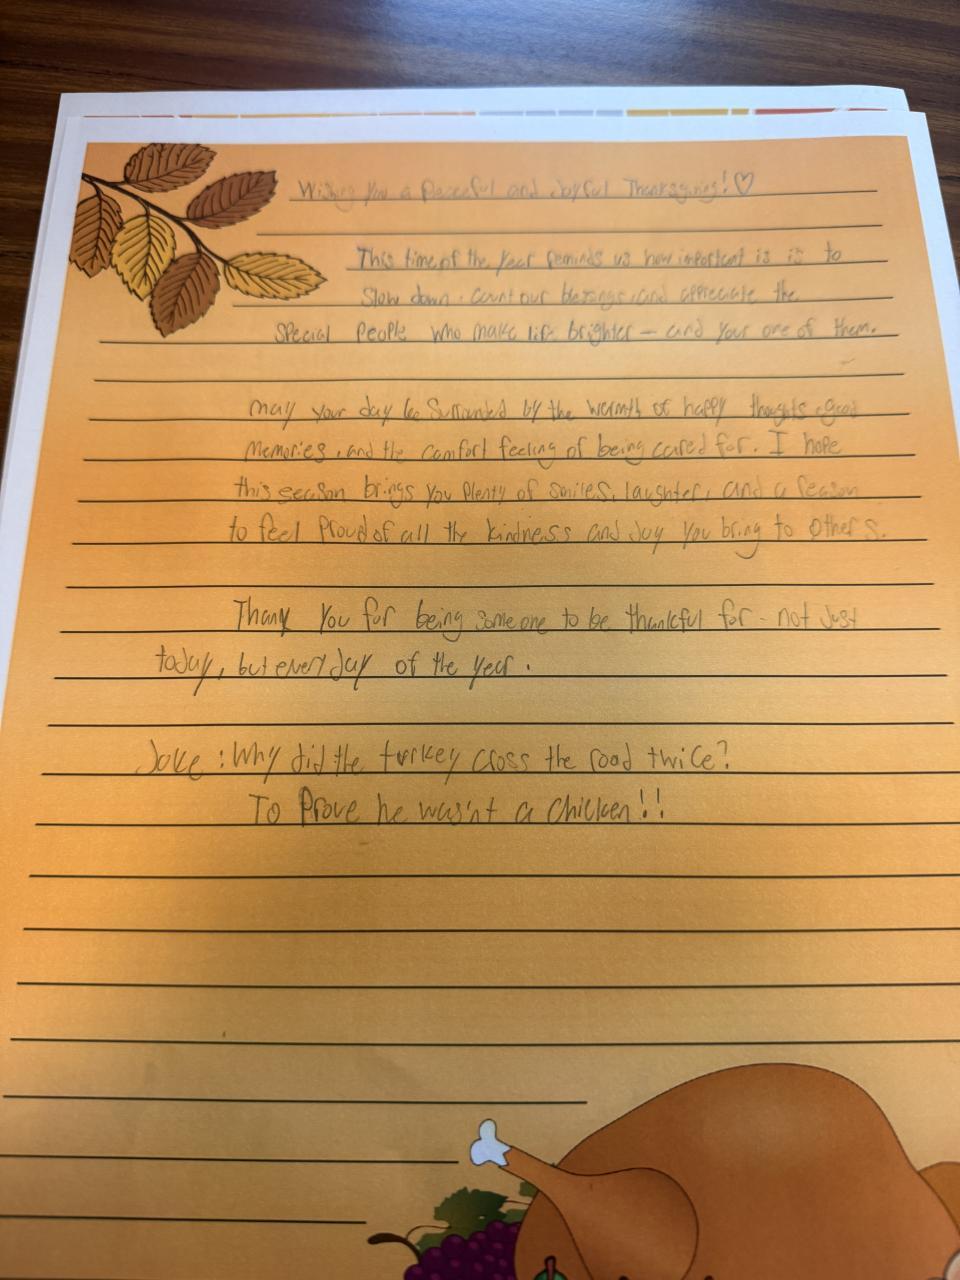 Wishing You a Peaceful and Joyful Thanksgiving! ♡
This time of the year reminds us how important is is to
Slow down, count our blessings, and appreciate the
Special People who make life brighter — and your one of them.
may your day be Surrounded by the warmth of happy thoughts, good
memories, and the comfort feeling of being cared for. I hope
this season brings you plenty of smiles, laughter, and a reason
to feel Proud of all the kindness and Joy you bring to others.
Thank You for being someone to be thankful for - not Just
today, but every day of the year.
Joke : Why did the turkey cross the road twice?
To Prove he wasn't a chicken!!